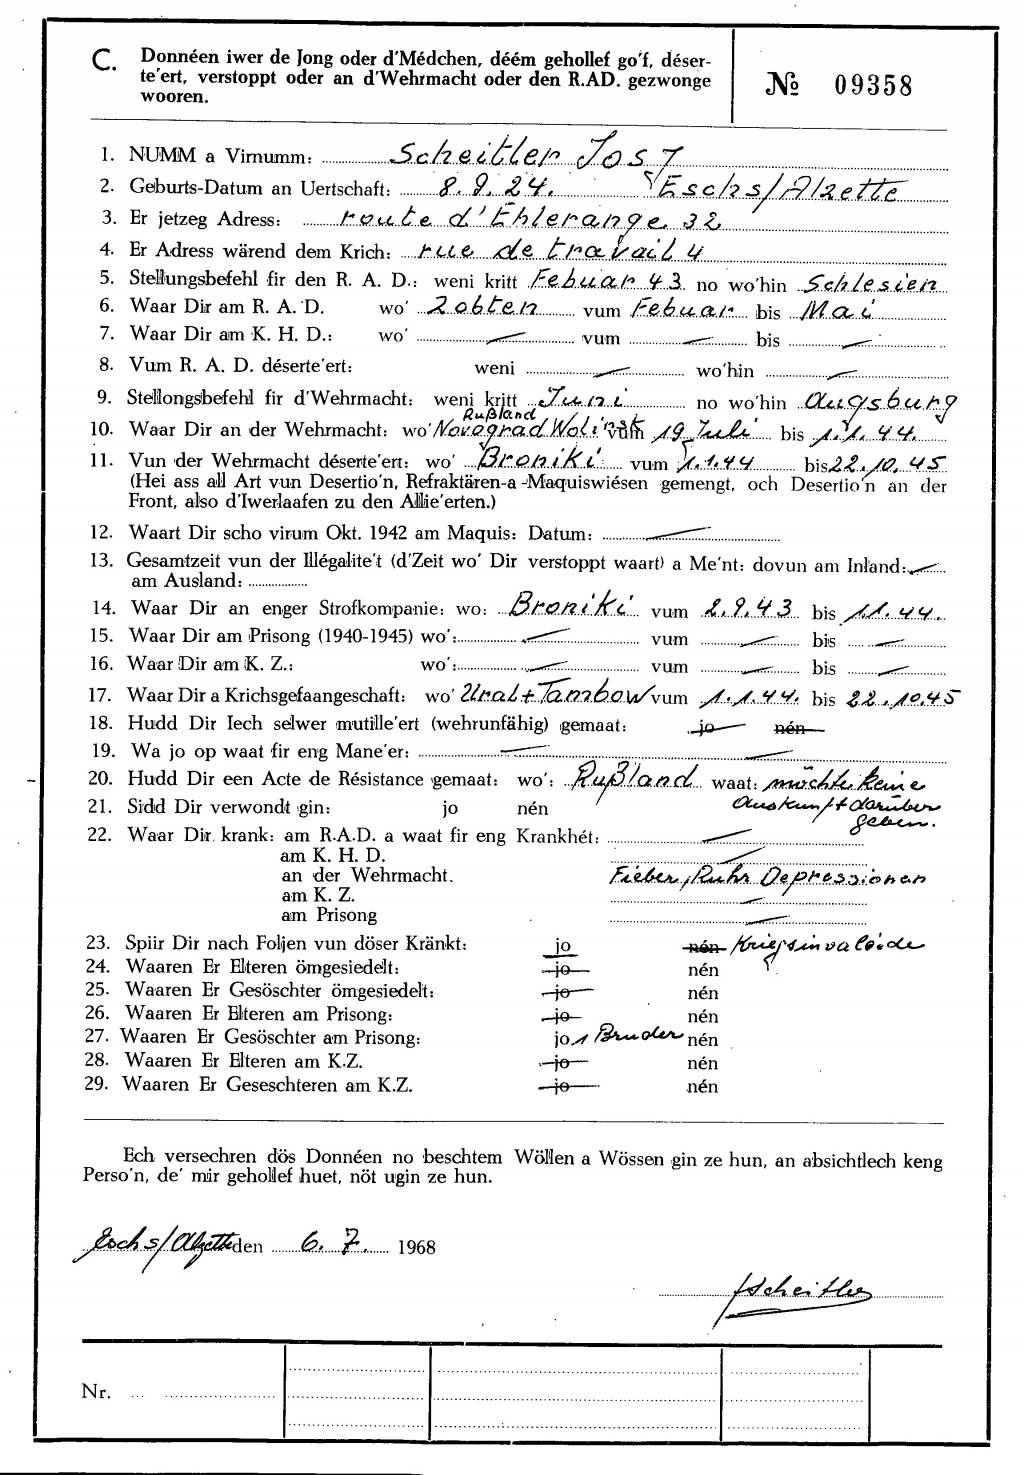 C. Donnéen iwer de Jong oder d'Médchen, déém gehollef go'f, déser-
te'ert, verstoppt oder an d'Wehrmacht oder den R.AD. gezwonge
wooren.
№ 09358
1. NUMM a Virnumm: Scheitler Josy
2. Geburts-Datum an Uertschaft: 8.9.24. Eschs/Alzette
3. Er jetzeg Adress: route d'Ehlerange 32
4. Er Adress wärend dem Krich: rue de travail 4
5. Stellungsbefehl fir den R. A. D.: weni kritt Febuar 43 no wo'hin Schlesien
6. Waar Dir am R. A. D. wo' Zobten vum Febuar bis Mai
7. Waar Dir am K. H. D.: wo' — vum — bis —
8. Vum R. A. D. déserte'ert: weni — wo'hin —
9. Stellongsbefehl fir d'Wehrmacht: weni kritt Juni no wo'hin Augsburg
Rußland
10. Waar Dir an der Wehrmacht: wo' Novograd Wolinsk vum 19 Juli bis 1.1.44.
11. Vun der Wehrmacht déserte'ert: wo' Broniki vum 1.1.44 bis 22.10.45
(Hei ass all Art vun Desertio'n, Refraktären-a -Maquiswiésen gemengt, och Desertio'n an der
Front, also d'Iwerlaafen zu den Allie'erten.)
12. Waart Dir scho virum Okt. 1942 am Maquis: Datum: —
13. Gesamtzeit vun der Illégalite't (d'Zeit wo' Dir verstoppt waart) a Me'nt: dovun am Inland: —
am Ausland:
14. Waar Dir an enger Strofkompanie: wo: Broniki vum 2.9.43 bis 1.1.44.
15. Waar Dir am Prisong (1940-1945) wo': — vum — bis —
16. Waar Dir am K. Z.: wo': — vum — bis —
17. Waar Dir a Krichsgefaangeschaft: wo' Ural + Tambow vum 1.1.44. bis 22.10.45
18. Hudd Dir Iech selwer mutille'ert (wehrunfähig) gemaat: jo nén
19. Wa jo op waat fir eng Mane'er: — —
20. Hudd Dir een Acte de Résistance gemaat: wo': Rußland waat: möchte keine
21. Sidd Dir verwondt gin: jo nén Auskunft darüber
geben.
22. Waar Dir krank: am R.A.D. a waat fir eng Krankhét: —
am K. H. D. —
an der Wehrmacht. Fieber, Ruhr Depressionen
am K. Z. —
am Prisong —
23. Spiir Dir nach Foljen vun döser Kränkt: jo nén Kriegsinvaloide
24. Waaren Er Elteren ömgesiedelt: jo nén
25. Waaren Er Gesöschter ömgesiedelt: jo nén
26. Waaren Er Elteren am Prisong: jo nén
27. Waaren Er Gesöschter am Prisong: jo 1 Bruder nén
28. Waaren Er Elteren am K.Z. jo nén
29. Waaren Er Geseschteren am K.Z. jo nén
Ech versechren dös Donnéen no beschtem Wöllen a Wössen gin ze hun, an absichtlech keng
Perso'n, de' mir gehollef huet, nöt ugin ze hun.
Eschs/Alzette den 6. 7. 1968
JScheitler
Nr.